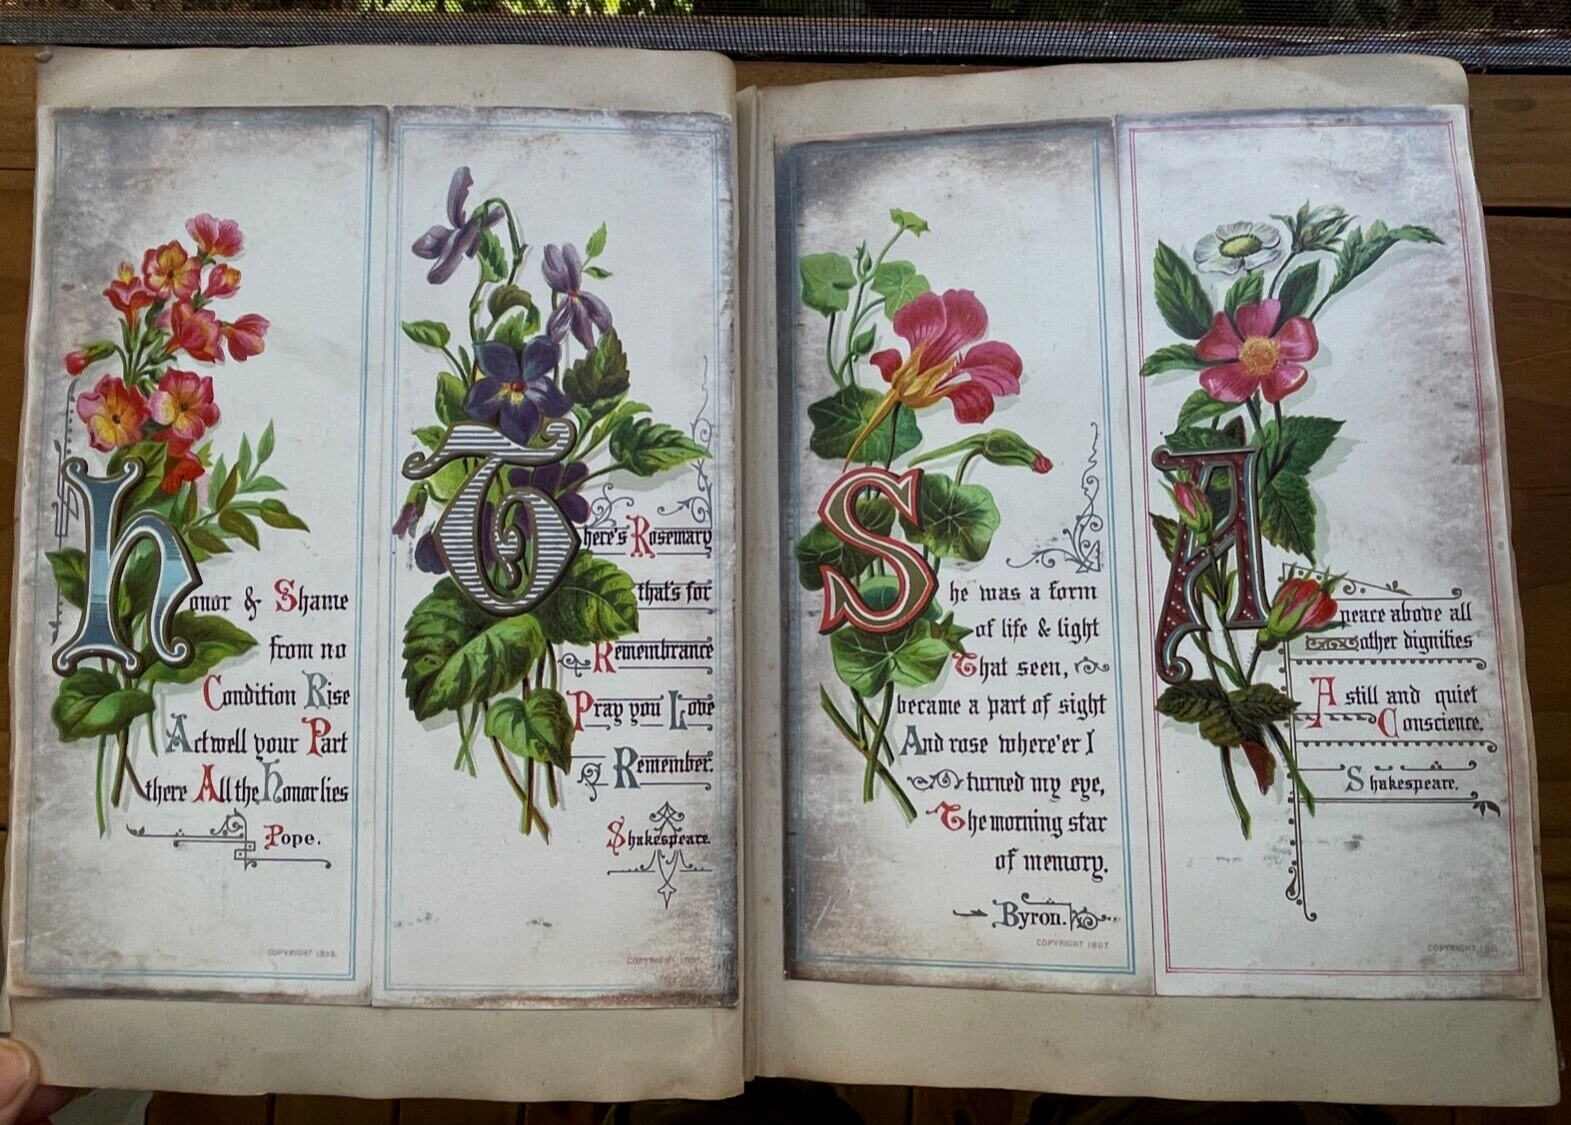 Honor & Shame
from no
Condition Rise
Act well your Part
there All the Honor lies
Pope.
COPYRIGHT
There's Rosemary
that's for
Remembrance
Pray you Love
Remember.
Shakespeare.
COPYRIGHT
She was a form
of life & light
That seen,
became a part of sight
And rose where'er I
turned my eye,
The morning star
of memory.
Byron.
COPYRIGHT 1897.
A peace above all
other dignities
A still and quiet
Conscience.
Shakespeare.
COPYRIGHT